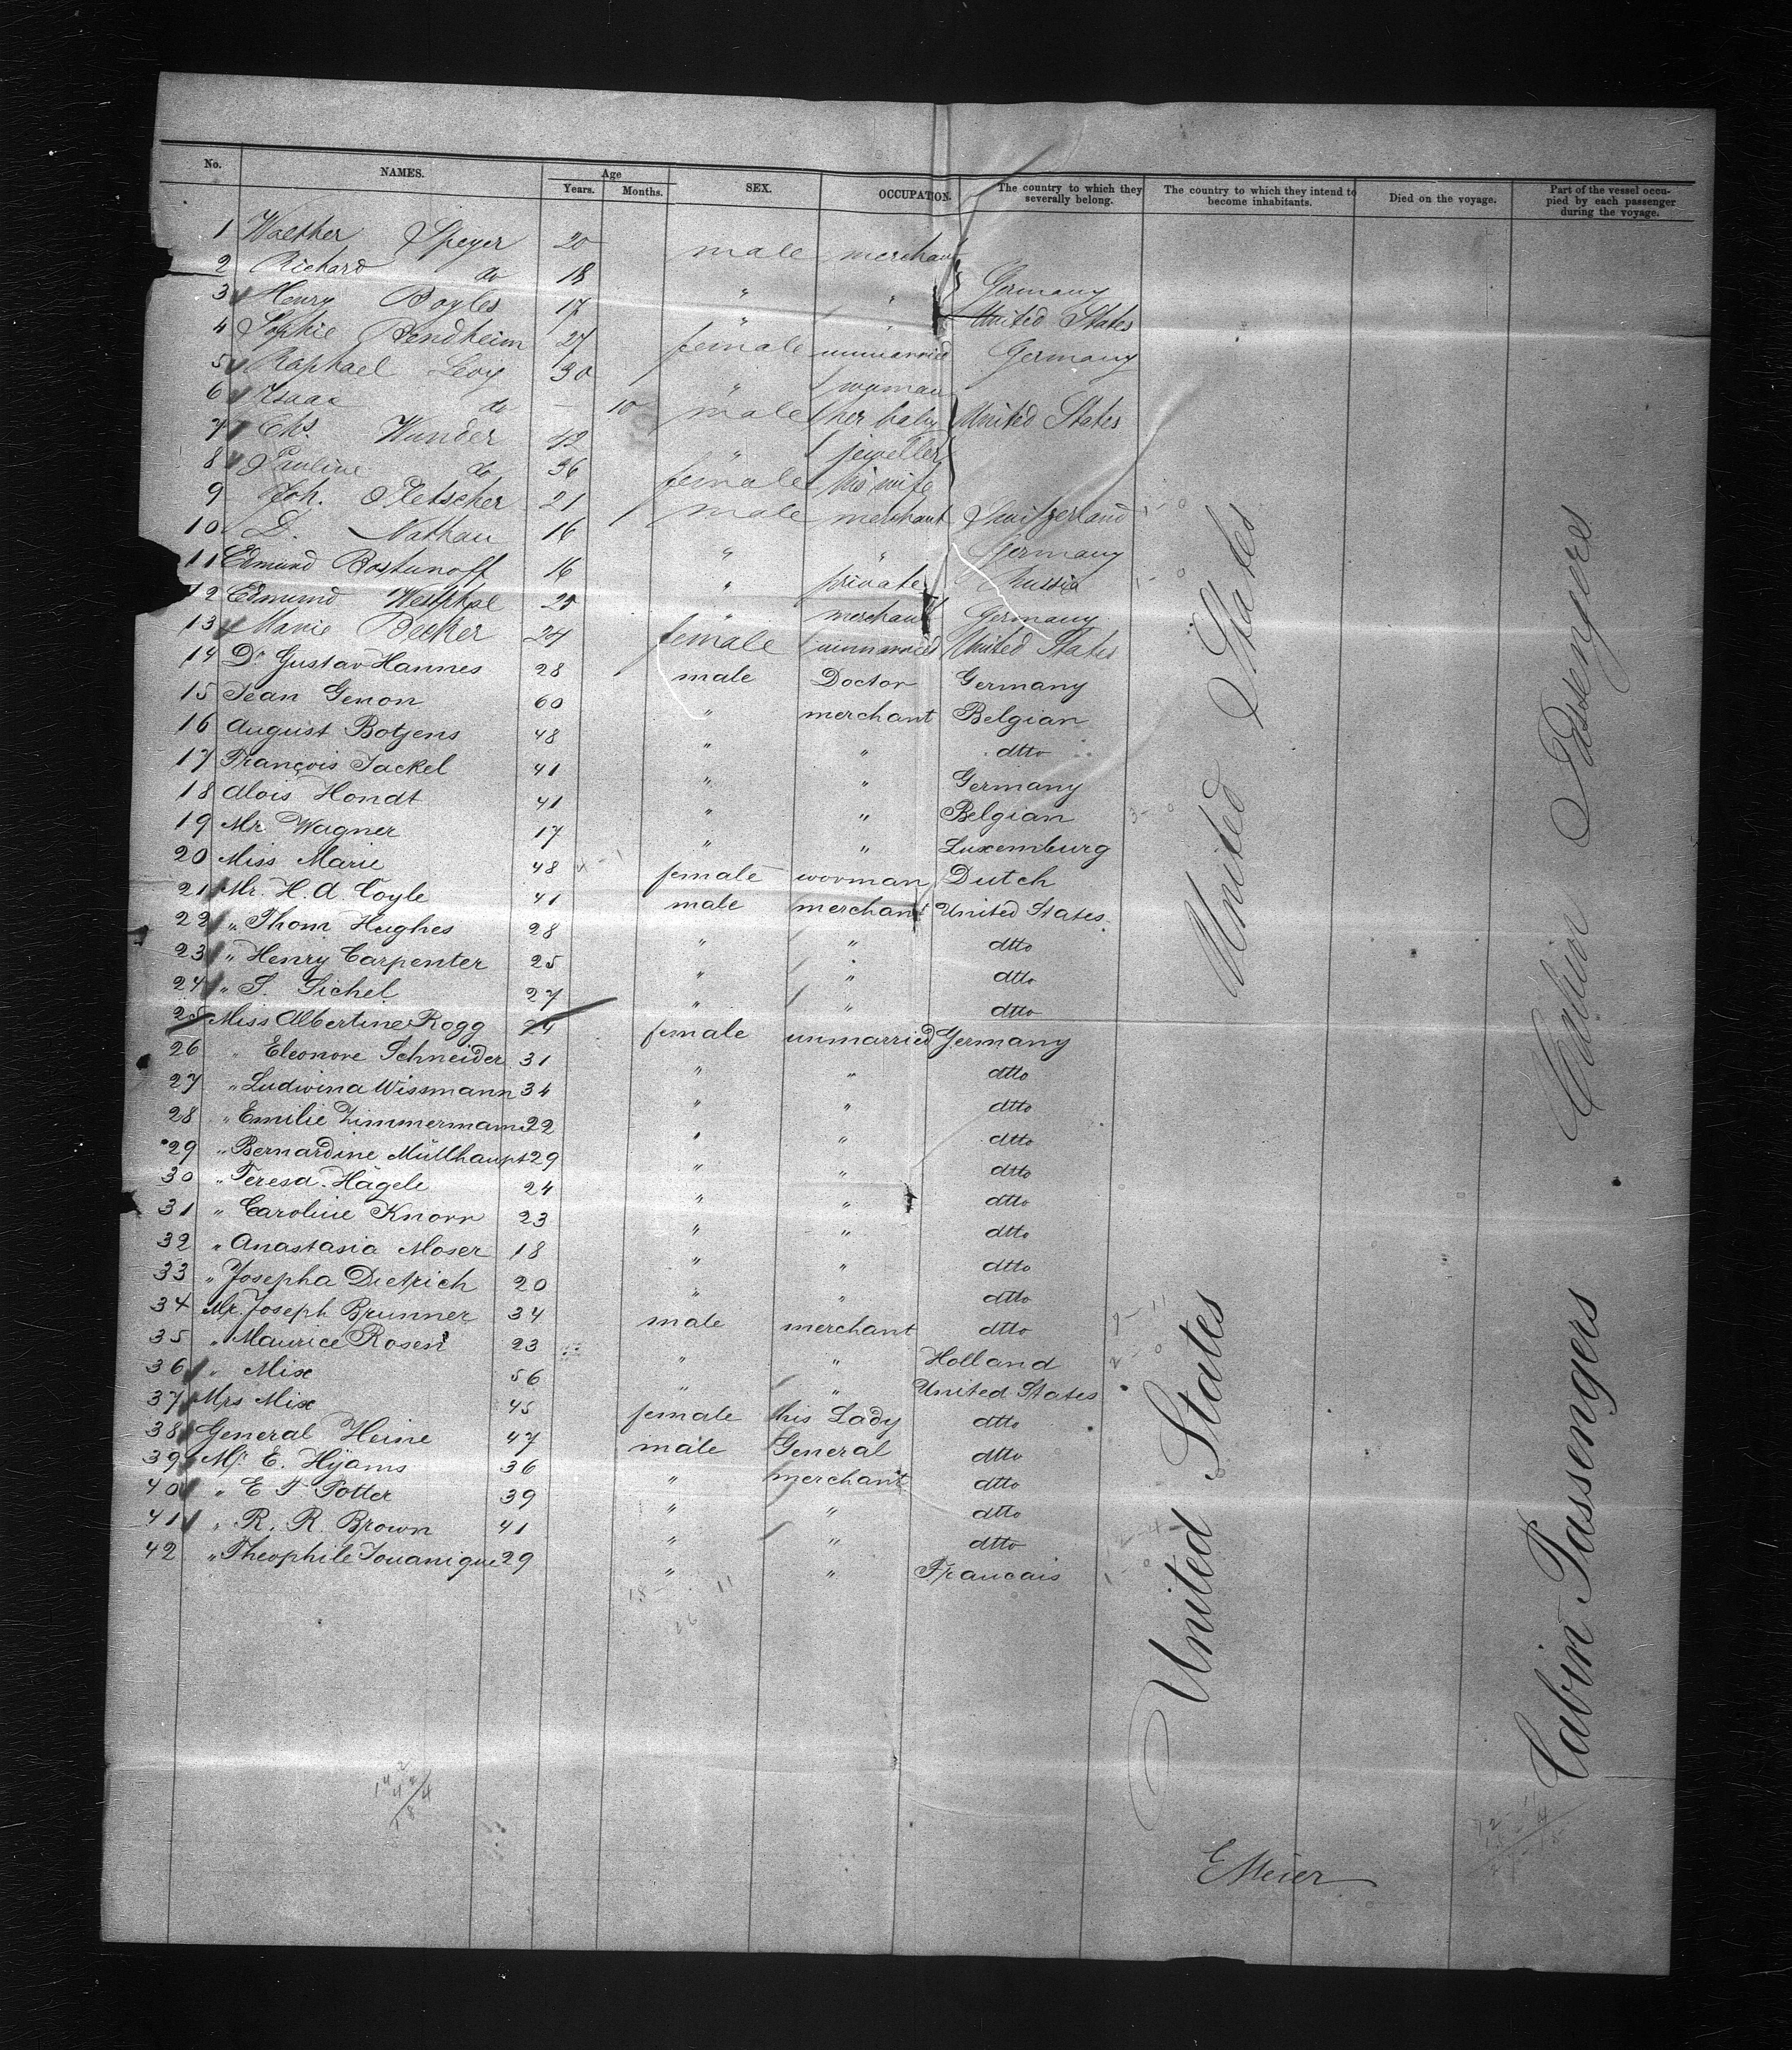 No. NAMES. Age Years. Months. SEX. OCCUPATION. The country to which they severally belong. The country to which they intend to become inhabitants. Died on the voyage. Part of the vessel occupied by each passenger during the voyage.
1 Walther Speyer 20 male merchant
2 Richard do 18 " " Germany
3 Henry Boyles 17 " " United States
4 Sophie Bendheim 27 female unmarried Germany
5 Raphael Levy 30 " woman
6 Isaac do – 10 male her baby United States
7 Chs. Wunder 42 " jeweller
8 Pauline do 36 female his wife
9 Joh. Pletscher 21 male merchant Switzerland
10 D. Nathan 16 " " Germany
11 Edmund Bostunoff 16 " private Russia
12 Edmund Westphal 25 " merchant Germany
13 Marie Becker 24 female unmarried United States
14 Dr Gustav Hannes 28 male Doctor Germany
15 Jean Genon 60 " merchant Belgian
16 August Botjens 48 " " dtto
17 François Jackel 41 " " Germany
18 Alois Hondt 41 " " Belgian
19 Mr. Wagner 17 " " Luxemburg
20 Miss Marie 48 female worman Dutch
21 Mr. H. A. Coyle 41 male merchant United States
22 " Thom Hughes 28 " " dtto
23 " Henry Carpenter 25 " " dtto
24 " S. Sichel 27 " " dtto
25 Miss Albertine Rogg 24 female unmarried Germany
26 " Eleonore Schneider 31 " " dtto
27 " Ludwina Wissmann 34 " " dtto
28 " Emilie Zimmermann 22 " " dtto
29 " Bernardine Müllhaupt 29 " " dtto
30 " Teresa Hägele 24 " " dtto
31 " Caroline Knorr 23 " " dtto
32 " Anastasia Moser 18 " " dtto
33 " Josepha Dietrich 20 " " dtto
34 Mr. Joseph Brunner 34 male merchant dtto
35 " Maurice Rosen 23 " " Holland
36 " Mix 56 " " United States
37 Mrs Mix 45 female his Lady dtto
38 General Heine 47 male General dtto
39 Mr. E. Hyams 36 " merchant dtto
40 " E T Potter 39 " " dtto
41 " R. R. Brown 41 " " dtto
42 " Theophile Jouanique 29 " " Francais
United States
United States
Cabin Passengers
Cabin Passengers
E Meier